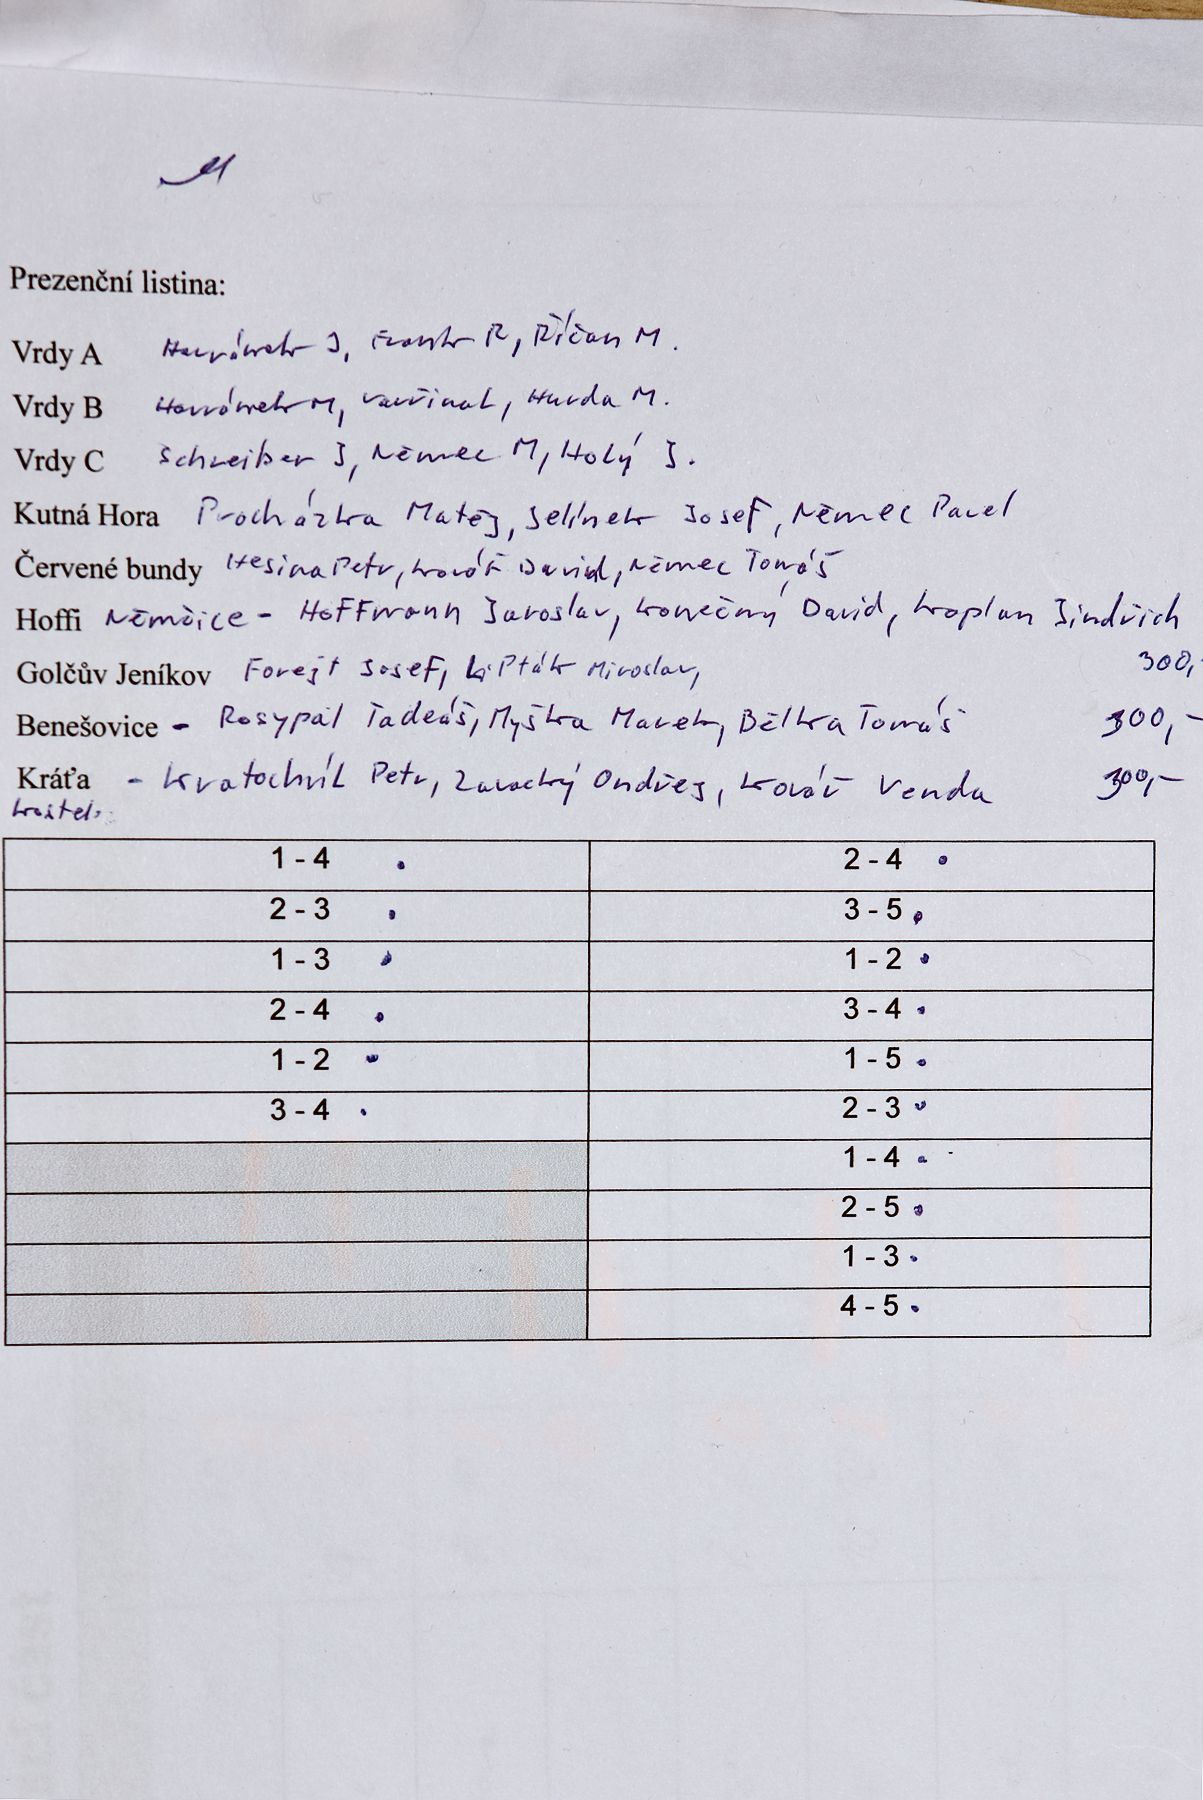 Prezenční listina:
Vrdy A Havránek J, Frank R, Říčan M.
Vrdy B Havránek M, Vavřina L, Hurda M.
Vrdy C Schreiber J, Němec M, Holý J.
Kutná Hora Procházka Matěj, Jelínek Josef, Němec Pavel
Červené bundy Hesina Petr, Kovář David, Němec Tomáš
Hoffi Němčice - Hoffmann Jaroslav, Konečný David, Kaplan Jindřich
Golčův Jeníkov Forejt Josef, Lipták Miroslav, 300,-
Benešovice - Rosypal Tadeáš, Myška Marek, Bělka Tomáš 300,-
Kráťa - Kratochvíl Petr, Ondřej, Kovář Venda 300,-
1 - 4 2 - 4
2 - 3 3 - 5
1 - 3 1 - 2
2 - 4 3 - 4
1 - 2 1 - 5
3 - 4 2 - 3
1 - 4
2 - 5
1 - 3
4 - 5